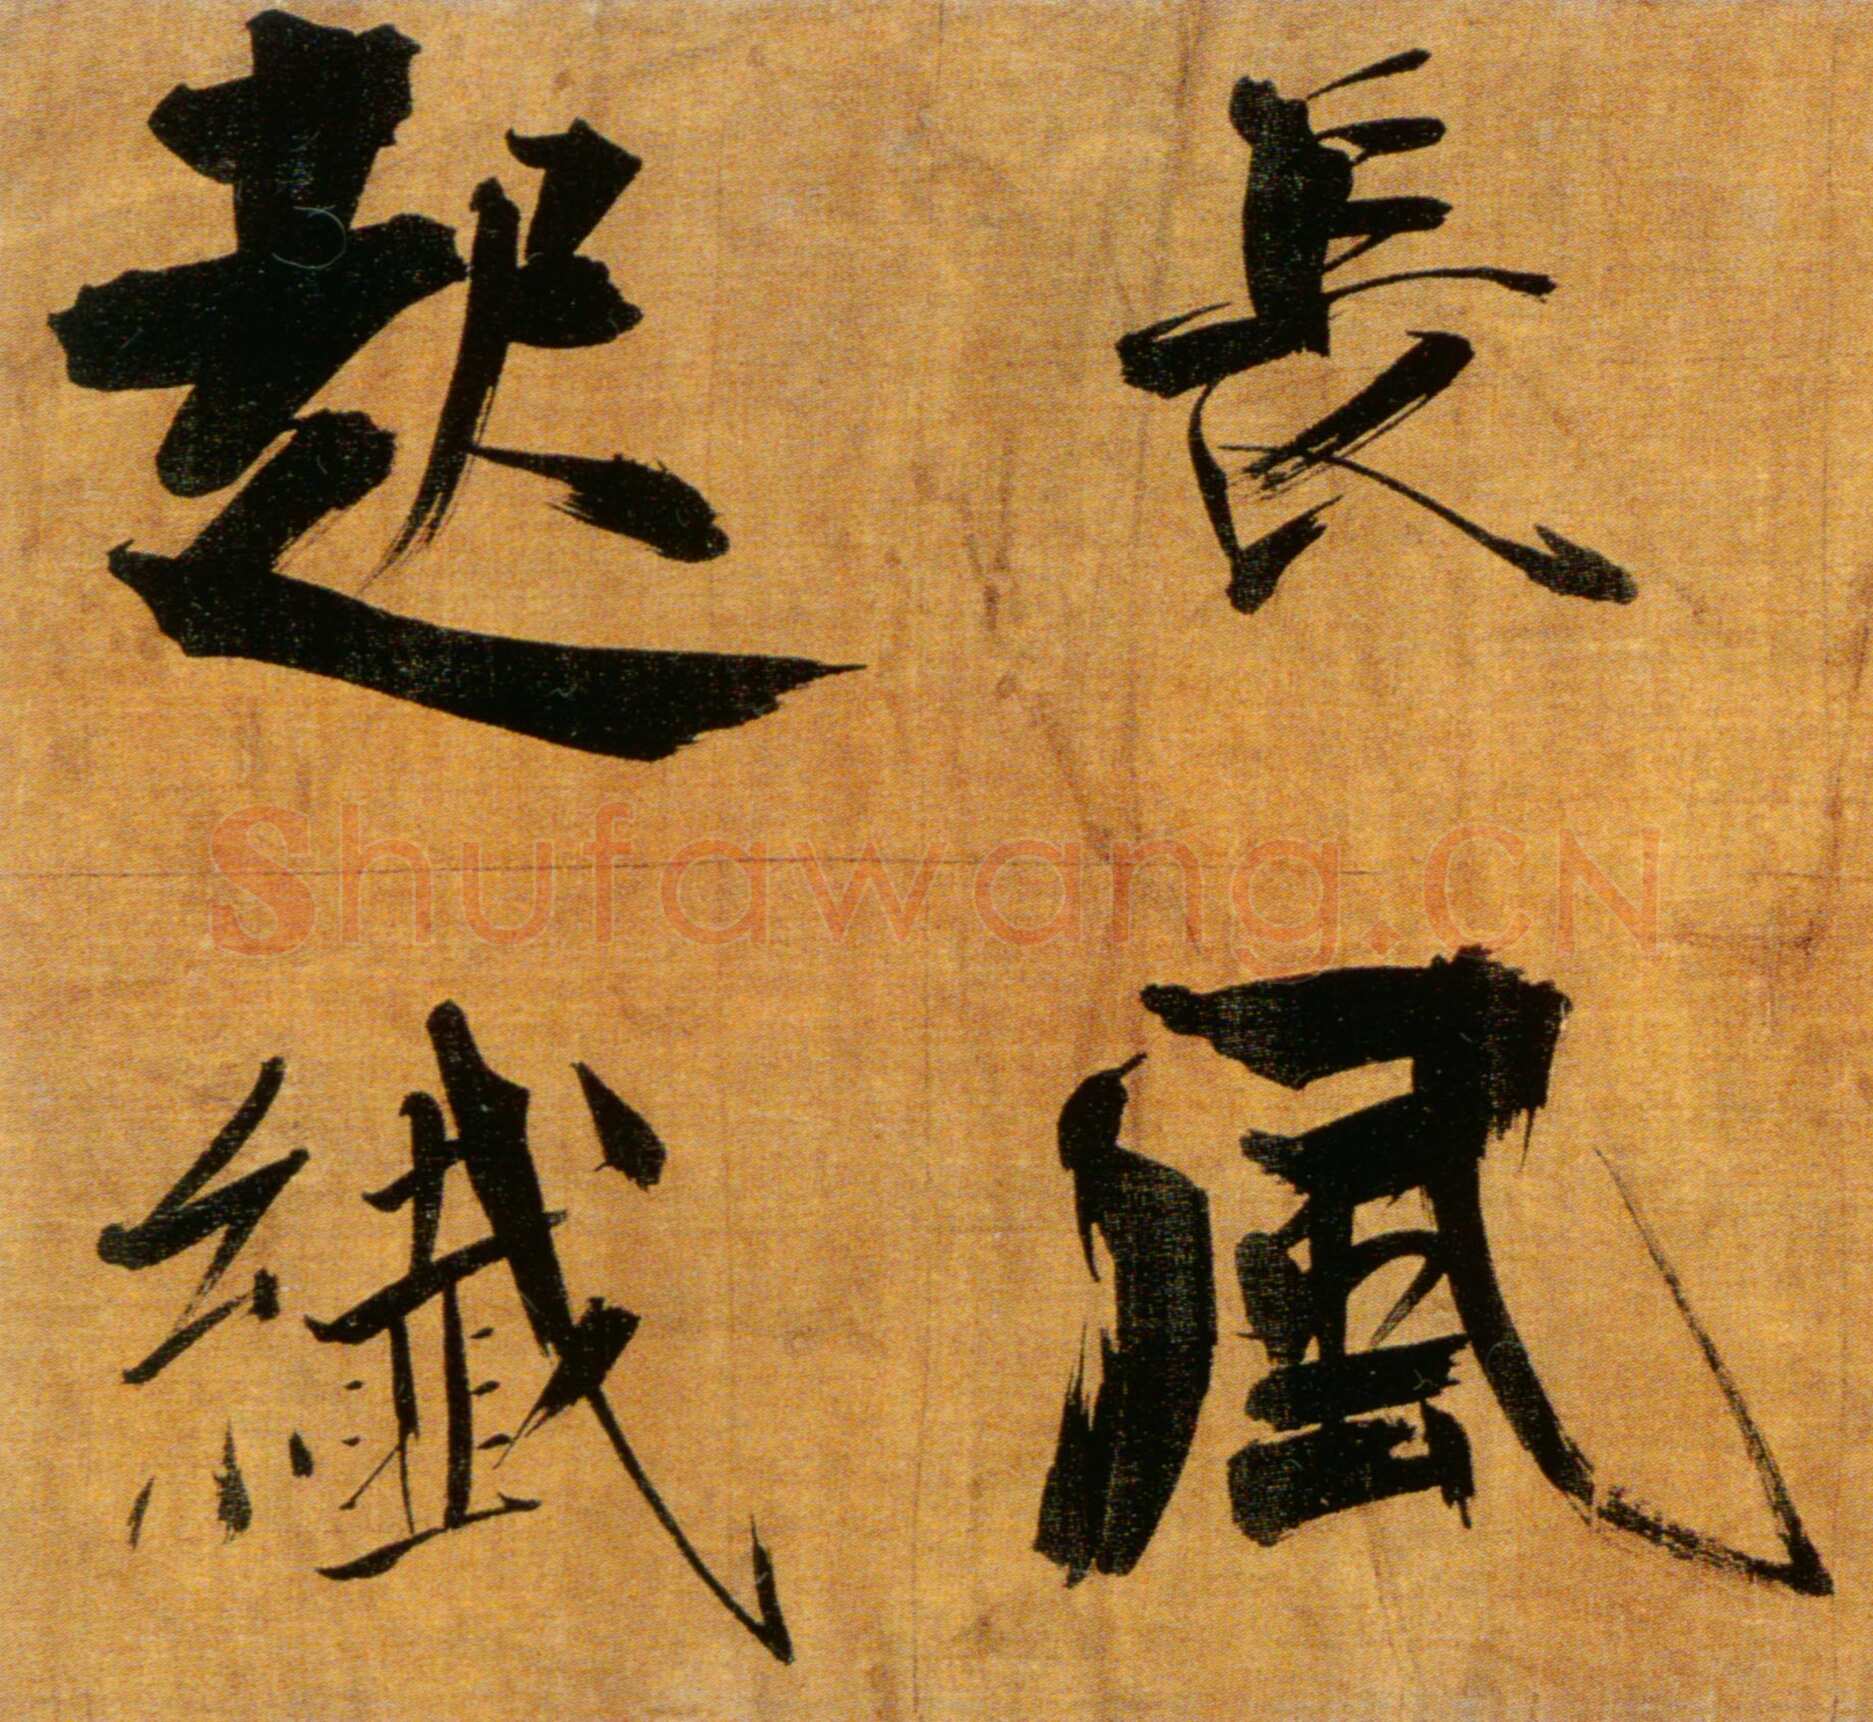 長風
起纖
Shufawang.CN